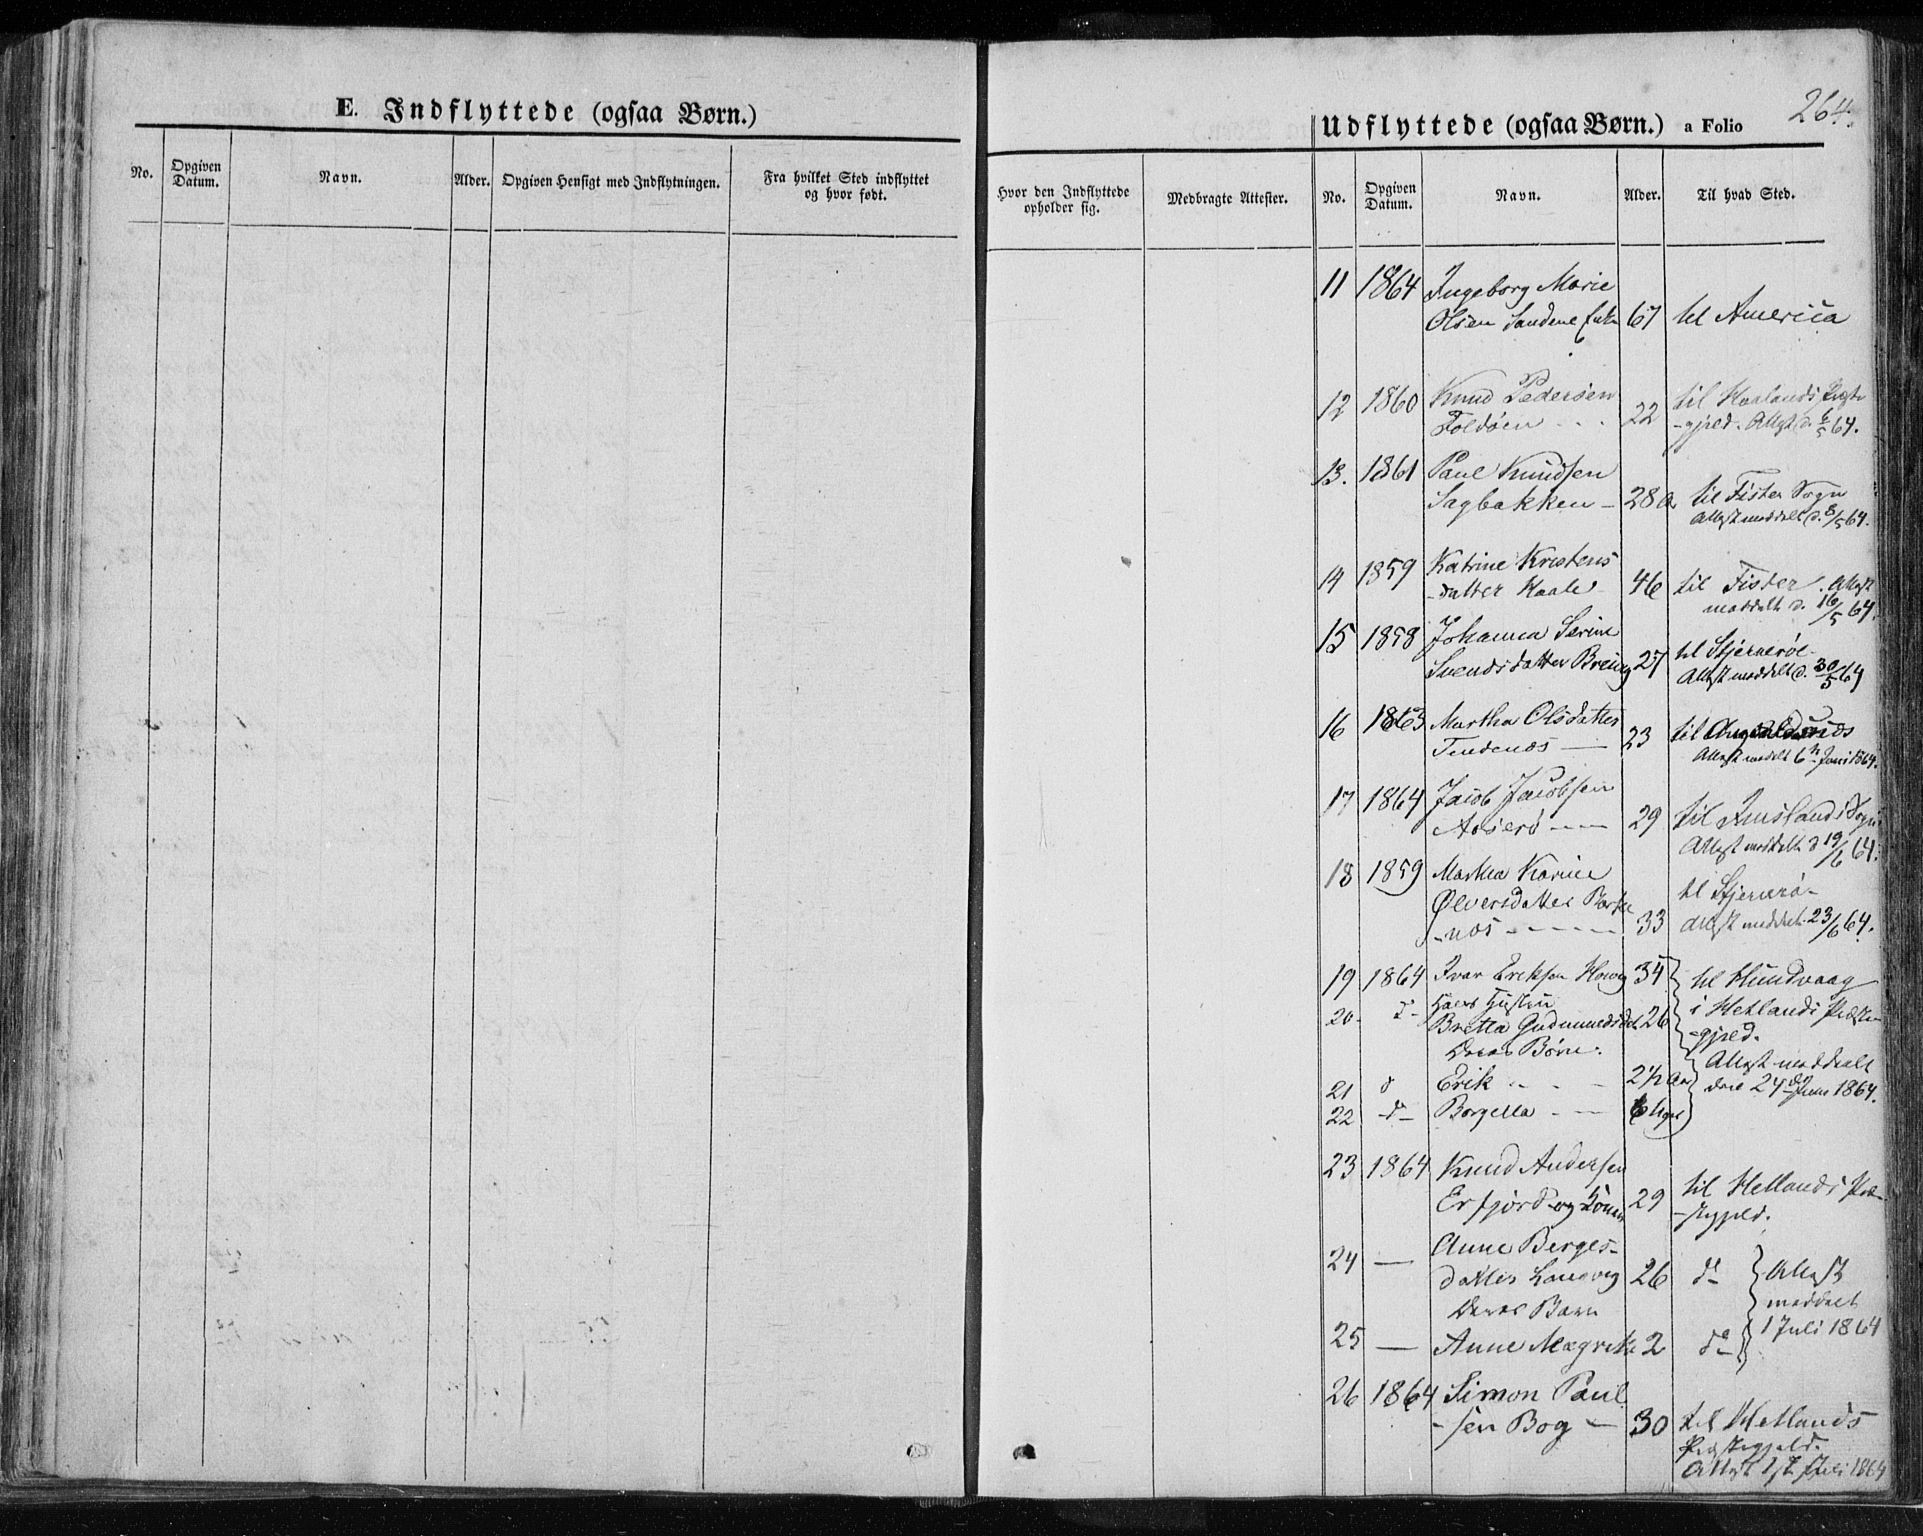 E. Indflyttede (ogsaa Børn.)
No.
Opgiven Datum.
Navn.
Alder.
Opgiven Hensigt med Indflytningen.
Fra hvilket Sted indflyttet
og hvor født.
264.
Udflyttede (ogsaa Børn.) a Folio
Hvor den Indflyttede
opholder sig.
Medbragte Attester.
No.
Opgiven Datum.
Navn.
Alder.
Til hvad Sted.
11 1864 Ingeborg Marie
Olsen Sandene Enke 67 til America
12 1860 Knud Pedersen til Haalands Præste
Foldøen 22 -gjeld. Attest d. 6/5 64.
13. 1861 Paul Knudsen
Sagbakken 28 til Fister Sogn
Attest meddelt d. 8/5 64.
14 1859 Katrine Kristens
-datter 46 til Fister. Attest
meddelt d. 16/5 64.
15 1858 Johanna Serine til Stjernerøe
Svendsdatter 27 Attest meddelt d. 30/5 64
16 1863 Martha Olsdatter til
23 Attest meddelt 6te Juni 1864.
17 1864 Jacob Jacobsen
29 til Sogn
Attest meddelt d 19/6 64.
18 1859 Martha Karine til Stjernerø-
Ølversdatter
-næs 33 Attest meddelt 23/6 64.
19 1864 Ivar Eriksen 34 til Hundvaag
20 d- Hans Hustru
Britta Gudmundsdat 26 i Hetlands Præste-
Deres Børn: -gjeld.
21 d Erik 2½ Aar Attest meddeelt
22 -d- Borgella 6 Uger den 24de Juni 1864.
23 1864 Knud Andersen
Erfjord og Kone 29 til Hetlands Præ-
-stgjeld.
24 — Anne Berges-
datter Langvig 26 do Attest
Deres Barn meddelt
25 — Anne Magrete 2 do 1 Juli 1864
26 1864 Simon Paul
-sen Bog — 30 til Hetlands
Præstegjeld.
Attest 1ste Juli 1864